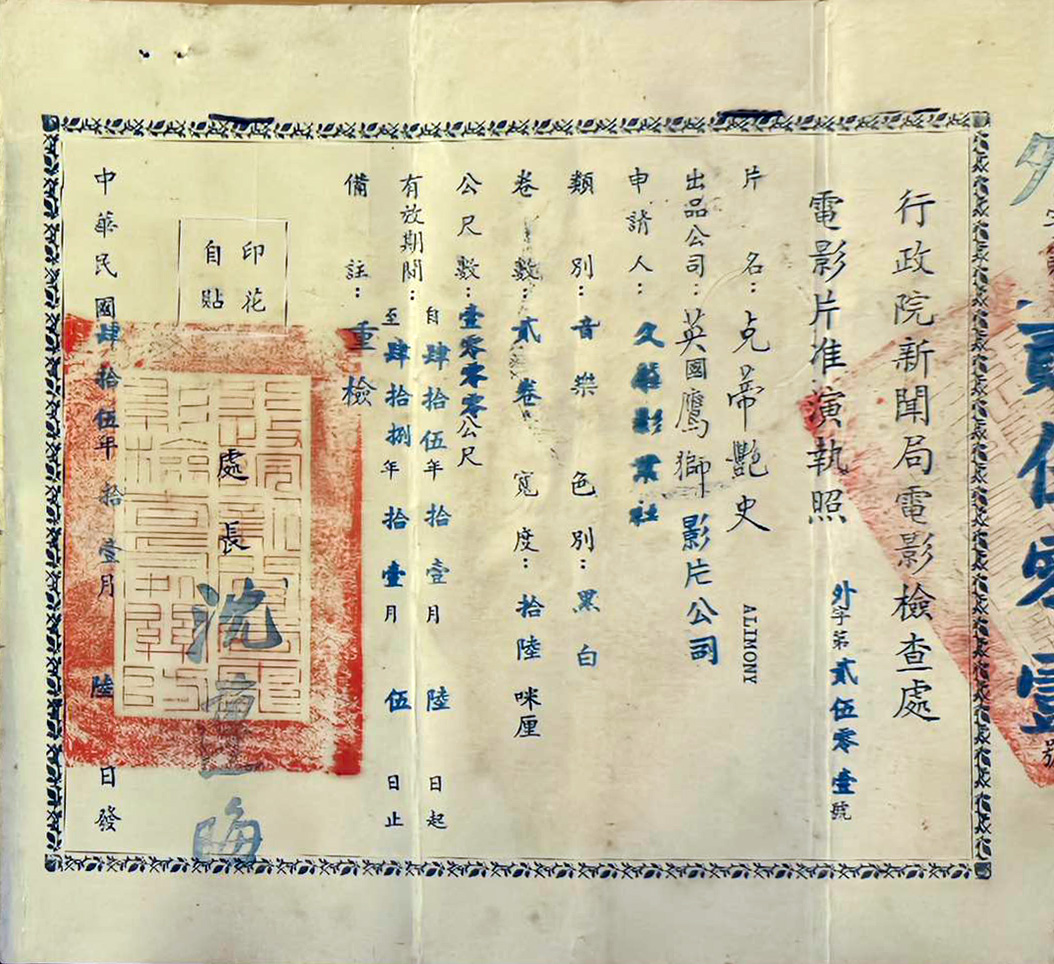 外字第貳伍零壹號
行政院新聞局電影檢查處
電影片准演執照
外字第貳伍零壹號
片名：克蒂艷史 ALIMONY
出品公司：英國鷹獅影片公司
申請人：文華影業社
類別：音樂 色別：黑白
卷數：貳卷 寬度：拾陸咪厘
公尺數：壹零零零公尺
有效期間：自肆拾伍年拾壹月陸日起
至肆拾捌年拾壹月伍日止
備註：重檢
印花
自貼
處長 沈
中華民國肆拾伍年拾壹月陸日發